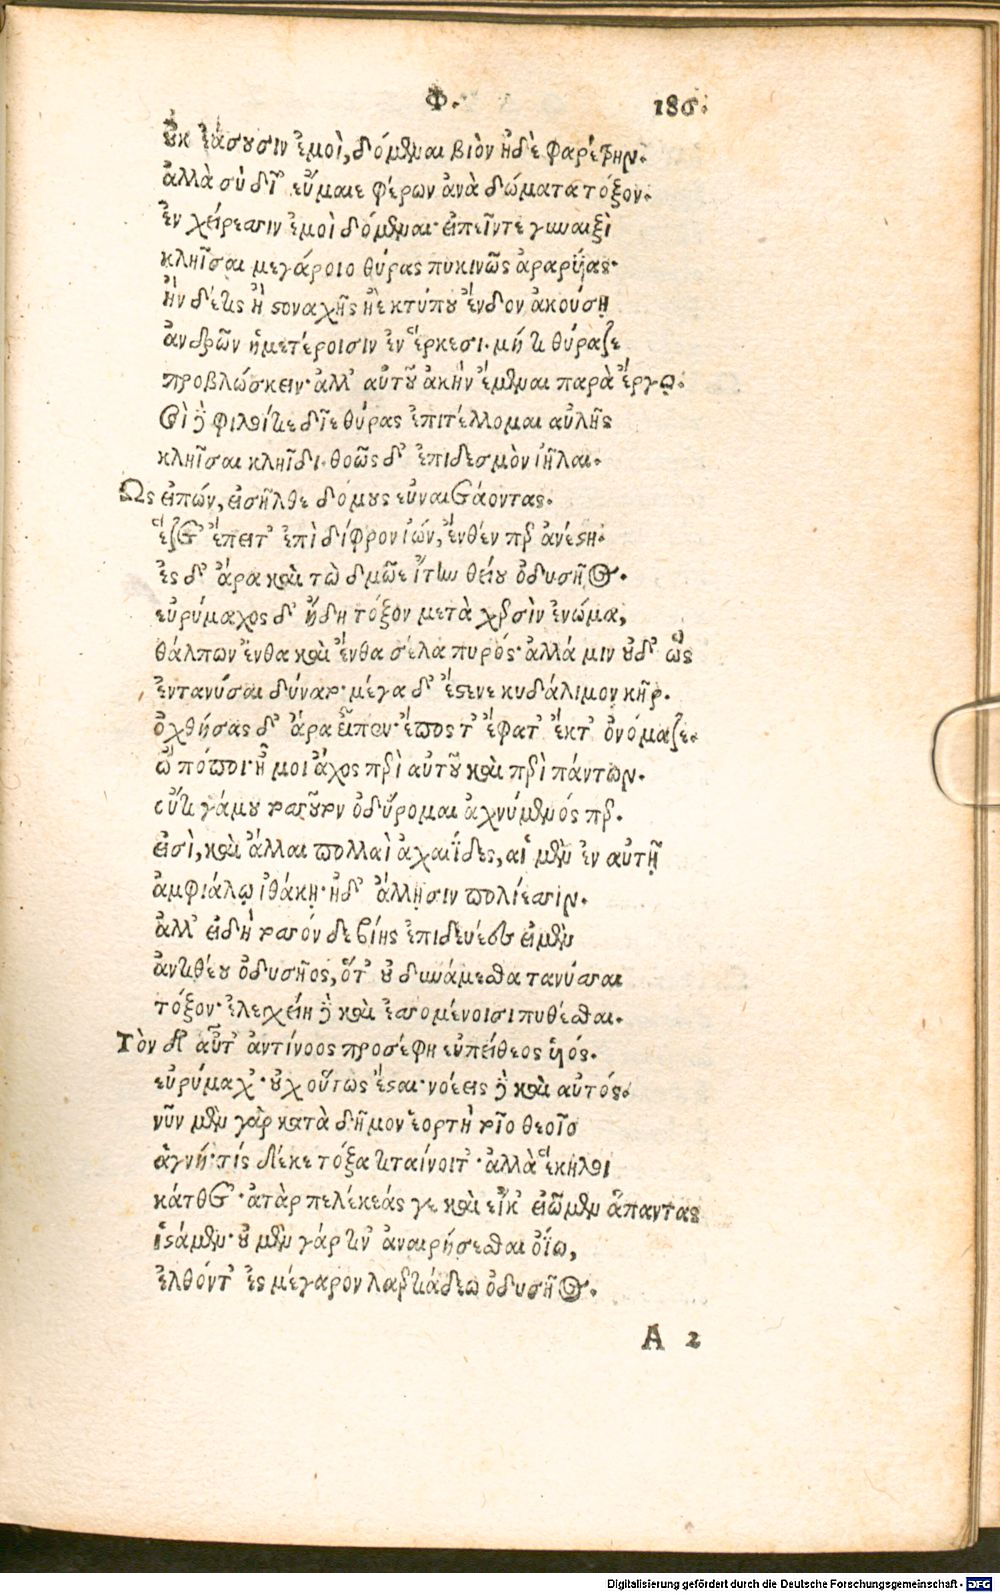 Φ. 186.
οὐκ ἐάσουσιν ἐμοὶ, δόμεναι βιὸν ἠδὲ φαρέτρην.
ἀλλὰ σὺ δῖ' εὔμαιε φέρων ἀνὰ δώματα τόξον.
ἐν χείρεσσιν ἐμοὶ δόμεναι· εἰπεῖν τε γυναιξὶ
κληῖσαι μεγάροιο θύρας πυκινῶς ἀραρυίας·
ἢν δέ τις ἢ στοναχῆς ἠὲ κτύπου ἔνδον ἀκούσῃ
ἀνδρῶν ἡμετέροισιν ἐν ἕρκεσι. μή τι θύραζε
προβλώσκειν· ἀλλ' αὐτοῦ ἀκὴν ἔμεναι παρὰ ἔργῳ.
σοὶ δὲ φιλοίτιε δῖε θύρας ἐπιτέλλομαι αὐλῆς
κληῖσαι κληῖδι. θοῶς δ' ἐπιδεσμὸν ἰῆλαι.
Ὣς εἰπών, εἰσῆλθε δόμους εὐναιετάοντας.
ἕζετ' ἔπειτ' ἐπὶ δίφρον ἰών, ἔνθέν περ ἀνέστη.
ἐς δ' ἄρα καὶ τὼ δμῶε ἴτην θείου ὀδυσῆος.
εὐρύμαχος δ' ἤδη τόξον μετὰ χερσὶν ἐνώμα,
θάλπων ἔνθα καὶ ἔνθα σέλα πυρός· ἀλλά μιν οὐδ' ὧς
ἐντανύσαι δύνατο· μέγα δ' ἔστενε κυδάλιμον κῆρ.
ὀχθήσας δ' ἄρα εἶπεν· ἔπος τ' ἔφατ' ἔκτ' ὀνόμαζε.
ὢ πόποι· ἦ μοι ἄχος περὶ αὐτοῦ καὶ περὶ πάντων.
οὔτι γάμου τοσσοῦτον ὀδύρομαι ἀχνύμενός περ.
εἰσὶ, καὶ ἄλλαι πολλαὶ ἀχαιΐδες, αἱ μὲν ἐν αὐτῇ
ἀμφιάλῳ ἰθάκῃ· ἠδ' ἄλλῃσιν πολίεσσιν.
ἀλλ' εἰ δὴ τοσσόν δε βίης ἐπιδευέες εἰμὲν
ἀντιθέου ὀδυσῆος, ὅτ' οὐ δυνάμεσθα τανύσσαι
τόξον· ἐλεγχείη δὲ καὶ ἐσσομένοισι πυθέσθαι.
Τὸν δ' αὖτ' ἀντίνοος προσέφη εὐπείθεος υἱός.
εὐρύμαχ'· οὐχ οὕτως ἔσται· νοέεις δὲ καὶ αὐτός.
νῦν μὲν γὰρ κατὰ δῆμον ἑορτὴ τοῖο θεοῖο
ἁγνή· τίς δέ κε τόξα τιταίνοιτ'· ἀλλὰ ἕκηλοι
κάτθετ'· ἀτὰρ πελέκεάς γε καὶ εἴκ' εἰῶμεν ἅπαντας
ἱστάμεν· οὐ μὲν γάρ τιν' ἀναιρήσεσθαι ὀΐω,
ἐλθόντ' ἐς μέγαρον λαερτιάδεω ὀδυσῆος.
A 2
Digitalisierung gefördert durch die Deutsche Forschungsgemeinschaft - DFG